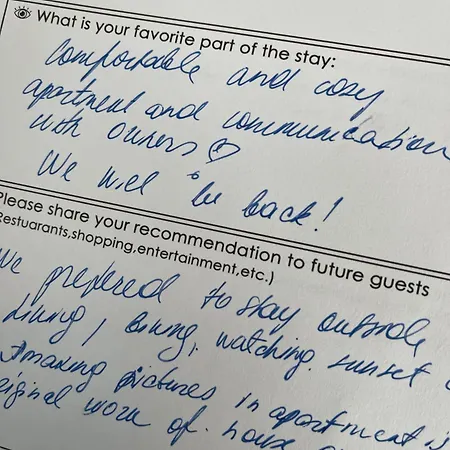 What is your favorite part of the stay:
Comfortable and cozy
apartment and communication
with owners ♡
We will be back!
Please share your recommendation to future guests
Restuarants,shopping,entertainment,etc.)
We prefered to stay outside
watching sunset
Amazing pictures in apartment is
original work of house